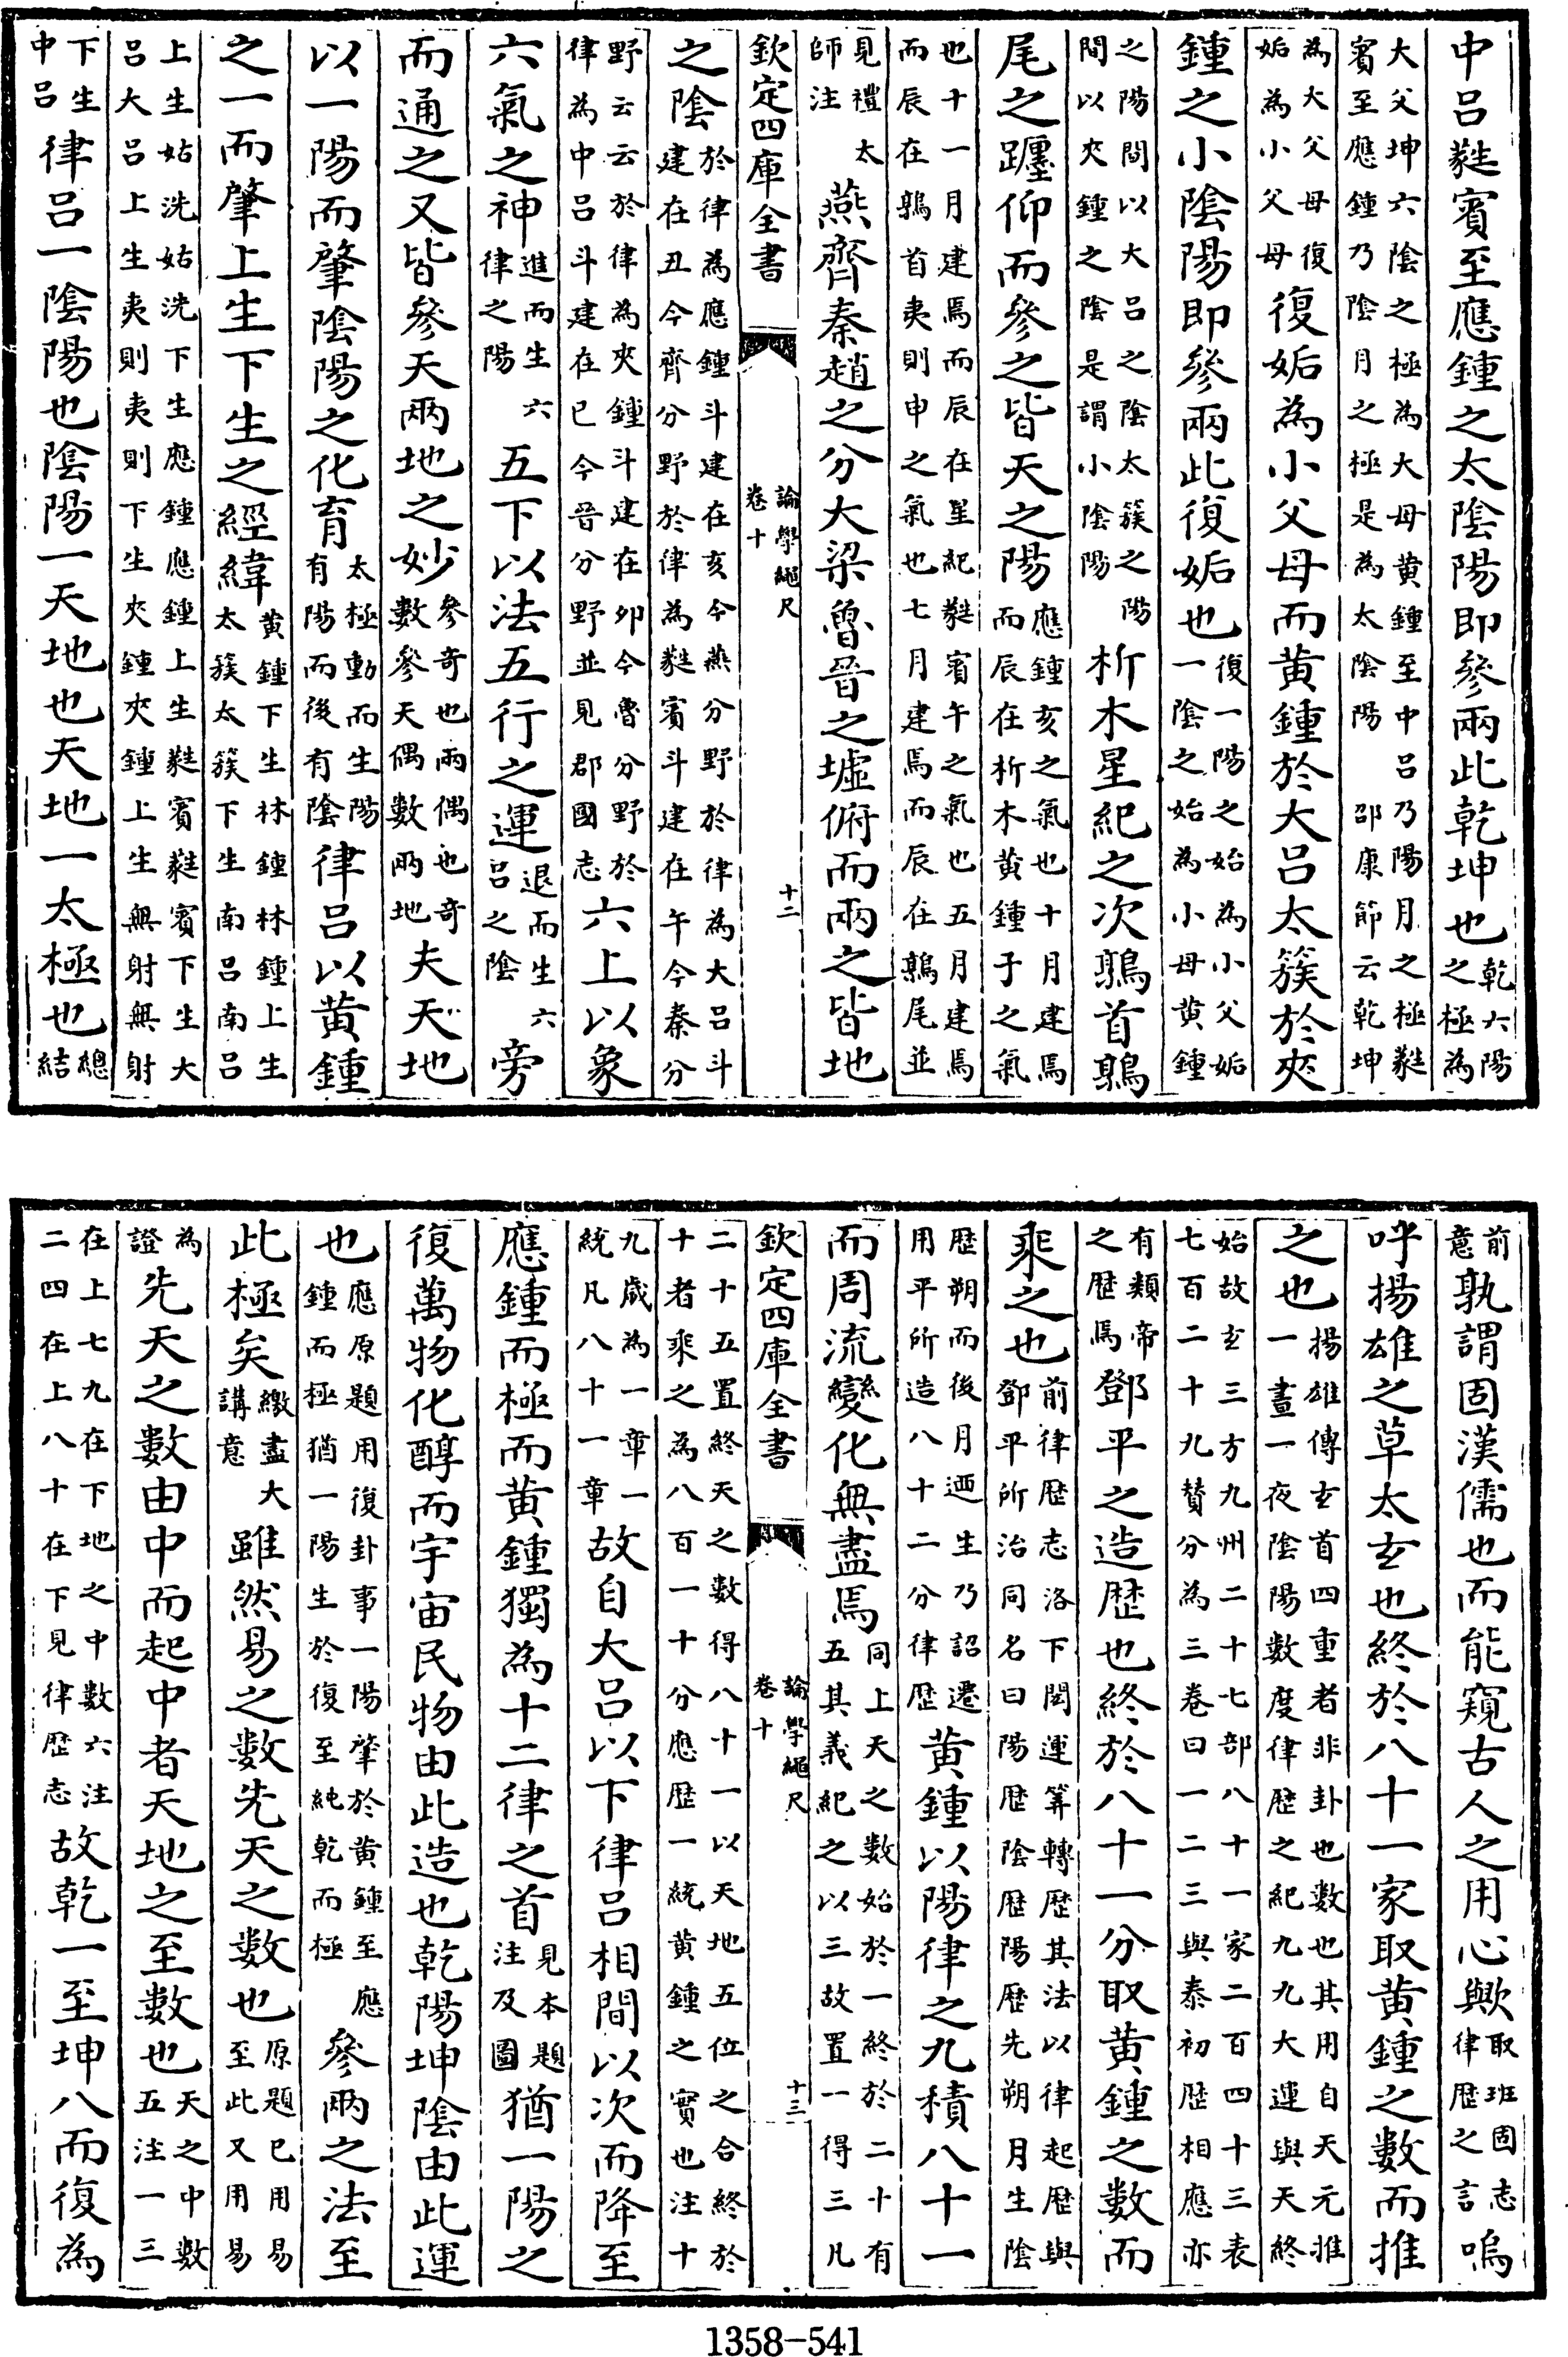 中呂蕤賓至應鍾之太陰陽即參兩此乾坤也乾六陽之極為
大父坤六陰之極為大母黄鍾至中呂乃陽月之極蕤賓至應鍾乃陰月之極是為太陰陽邵康節云乾坤
為大父母復姤為小父母復姤為小父母而黄鍾於大呂太簇於夾
鍾之小陰陽即參兩此復姤也復一陽之始為小父姤一陰之始為小母黄鍾
之陽間以大呂之陰太簇之陽間以夾鍾之陰是謂小陰陽析木星紀之次鶉首鶉
尾之躔仰而參之皆天之陽應鍾亥之氣也十月建焉而辰在析木黄鍾子之氣
也十一月建焉而辰在星紀蕤賓午之氣也五月建焉而辰在鶉首夷則申之氣也七月建焉而辰在鶉尾並
見禮太師注燕齊秦趙之分大梁魯晉之墟俯而兩之皆地
欽定四庫全書 論學繩尺 卷十 十二
之陰於律為應鍾斗建在亥今燕分野於律為大呂斗建在丑今齊分野於律為蕤賓斗建在午今秦分
野云云於律為夾鍾斗建在卯今魯分野於律為中呂斗建在巳今晉分野並見郡國志六上以象
六氣之神進而生六律之陽五下以法五行之運退而生六呂之陰旁
而通之又皆參天兩地之妙參奇也兩偶也奇數參天偶數兩地夫天地
以一陽而肇陰陽之化育太極動而生陽有陽而後有陰律呂以黄鍾
之一而肇上生下生之經緯黄鍾下生林鍾林鍾上生太簇太簇下生南呂南呂
上生姑洗姑洗下生應鍾應鍾上生蕤賓蕤賓下生大呂大呂上生夷則夷則下生夾鍾夾鍾上生無射無射
下生中呂律呂一陰陽也陰陽一天地也天地一太極也總結
前意孰謂固漢儒也而能窺古人之用心歟取班固志律歴之言嗚
呼揚雄之草太玄也終於八十一家取黄鍾之數而推
之也揚雄傳玄首四重者非卦也數也其用自天元推一晝一夜陰陽數度律歴之紀九九大運與天終
始故玄三方九州二十七部八十一家二百四十三表七百二十九贊分為三卷曰一二三與泰初歴相應亦
有類帝之歴焉鄧平之造歴也終於八十一分取黄鍾之數而
乘之也前律歴志洛下閎運筭轉歴其法以律起歴與鄧平所治同名曰陽歴陰歴陽歴先朔月生陰
歴朔而後月廼生乃詔遷用平所造八十二分律歴黄鍾以陽律之九積八十一
而周流變化無盡焉同上天之數始於一終於二十有五其義紀之以三故置一得三凡
欽定四庫全書 論學繩尺 卷十 十三
二十五置終天之數得八十一以天地五位之合終於十者乘之為八百一十分應歴一統黄鍾之實也注十
九歲為一章一統凡八十一章故自大呂以下律呂相間以次而降至
應鍾而極而黄鍾獨為十二律之首見本題注及圖猶一陽之
復萬物化醇而宇宙民物由此造也乾陽坤陰由此運
也應原題用復卦事一陽肇於黄鍾至應鍾而極猶一陽生於復至純乾而極應參兩之法至
此極矣繳盡大講意雖然易之數先天之數也原題已用易至此又用易
為證先天之數由中而起中者天地之至數也天之中數五注一三
在上七九在下地之中數六注二四在上八十在下見律歴志故乾一至坤八而復為
1358-541